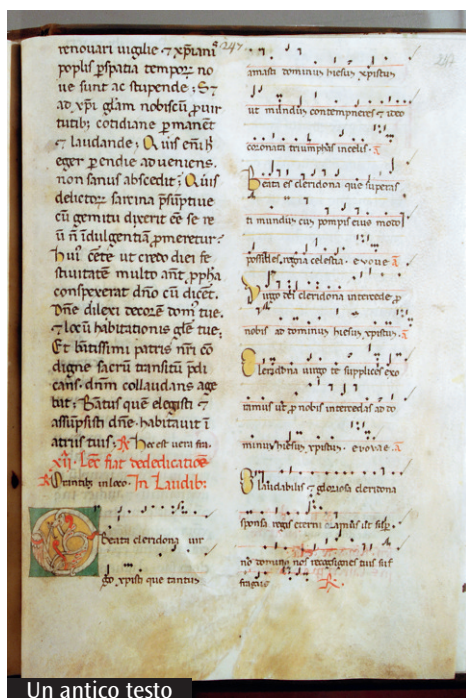 renovari vigilie ⁊ xp̄iani
poplis p̱spatia tempoꝝ no
ue sunt ac stupende ; S⁊
ad xp̄i gl̄am nobiscū ꝓ uir
tutib; cotidiane p̱manēt
⁊ laudande ; Q uis eni h
eger p̱endie adveniens
non sanus abscedit ; Q uis
delictoꝝ sarcina p̄sūptiue
cū gemitu dixerit eē se re
ū ñ īdulgentiā ꝓmeretur ?
hui cēte ut credo diei fe
stiuitatē multo ant̄ ꝓpha
conspexerat dn̄o cū dicēt.
Dn̄e dilexi decorē dom̄ tue,
⁊ locū habitationis glē tue;
Et b̄tissimi patris nr̄i cō
digne sacrū transitū p̄di
cans. dnm collaudans age
bat ; Batus quē elegisti ⁊
assūpsisti dn̄e. habitauit ī
atriis tuis ; R hec est uera
xii Lec̄ fiat dededicatiōe
R Orantib; in loco. In Laudib:
O
beata cleridona uir
go xpisti que tantus
247
247
amasti dominus hiesus xpistus
ut mundus contempneres ⁊ ideo
coronata triumphas incelis. a
Beata es cleridona que superas
ti mundus cus pompis eius modo
possides regna celestia. evovae a
Virgo dei cleridona intercede ꝓ
nobis ad dominus hiesus xpistus. a
Cleridona uirgo te supplices exo
ramus ut ꝓ nobis intercedas ad do
minus hiesus xpistus. evovae. a
O laudabilis ⁊ gloriosa cleridona
sponsa regis eterni
no domino nos
fragiis R
Un antico testo